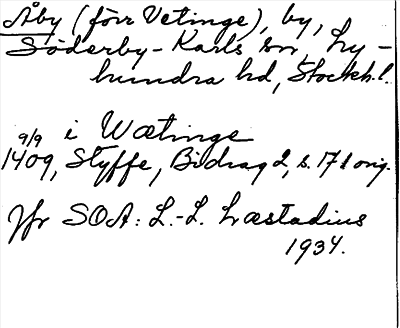 Åby (förr Vetinge), by,
Söderby-Karls sn, Ly-
hundra hd, Stockh.l.
9/9 i Wætinge
1409, Styffe, Bidrag 2, s. 171 orig.
Jfr SOA: L.-L. Læstadius
1934.